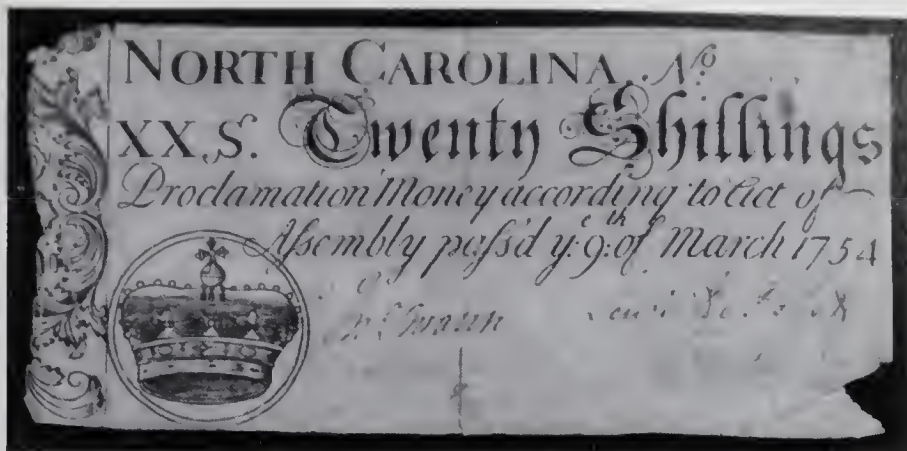 NORTH CAROLINA, No
XX,S. Twenty Shillings
Proclamation Money according to Act of
Assembly paſs'd ye. 9th. of March 1754